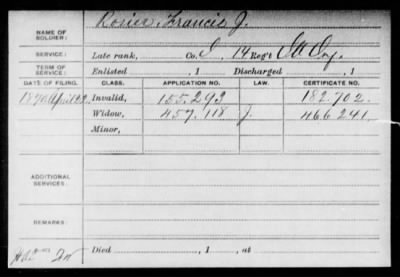 NAME OF SOLDIER: Rosier, Francis J.
SERVICE: Late rank, Co. I, 14 Reg't Ia Inf.
TERM OF SERVICE: Enlisted , 1 Discharged , 1
DATE OF FILING. CLASS. APPLICATION NO. LAW. CERTIFICATE NO.
1870 April 22, Invalid, 155.293 182.702.
Widow, 457.118 J. 466241.
Minor,
ADDITIONAL SERVICES:
REMARKS:
Died , 1 , at